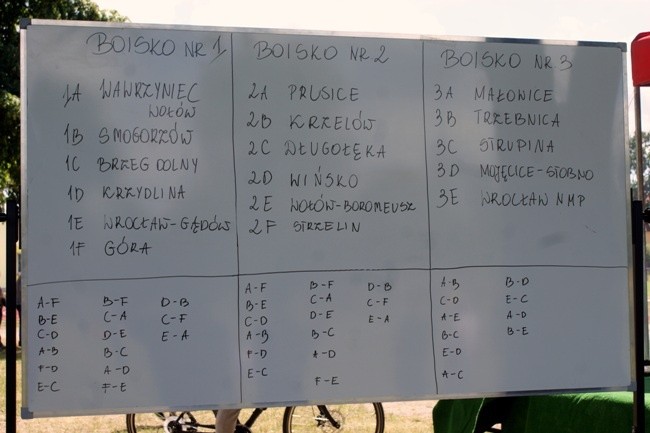 BOISKO NR 1
1A WAWRZYNIEC
WOŁÓW
1B SMOGORZÓW
1C BRZEG DOLNY
1D KRZYDLINA
1E WROCŁAW-GĄDÓW
1F GÓRA
A-F B-F D-B
B-E C-A C-F
C-D D-E E-A
A-B B-C
F-D A-D
E-C F-E
BOISKO NR 2
2A PRUSICE
2B KRZELÓW
2C DŁUGOŁĘKA
2D WIŃSKO
2E WOŁÓW-BOROMEUSZ
2F STRZELIN
A-F B-F D-B
B-E C-A C-F
C-D D-E E-A
A-B B-C
F-D A-D
E-C
F-E
BOISKO NR 3
3A MAŁOWICE
3B TRZEBNICA
3C STRUPINA
3D MOJĘCICE-STOBNO
3E WROCŁAW NMP
A-B B-D
C-D E-C
A-E A-D
B-C B-E
E-D
A-C